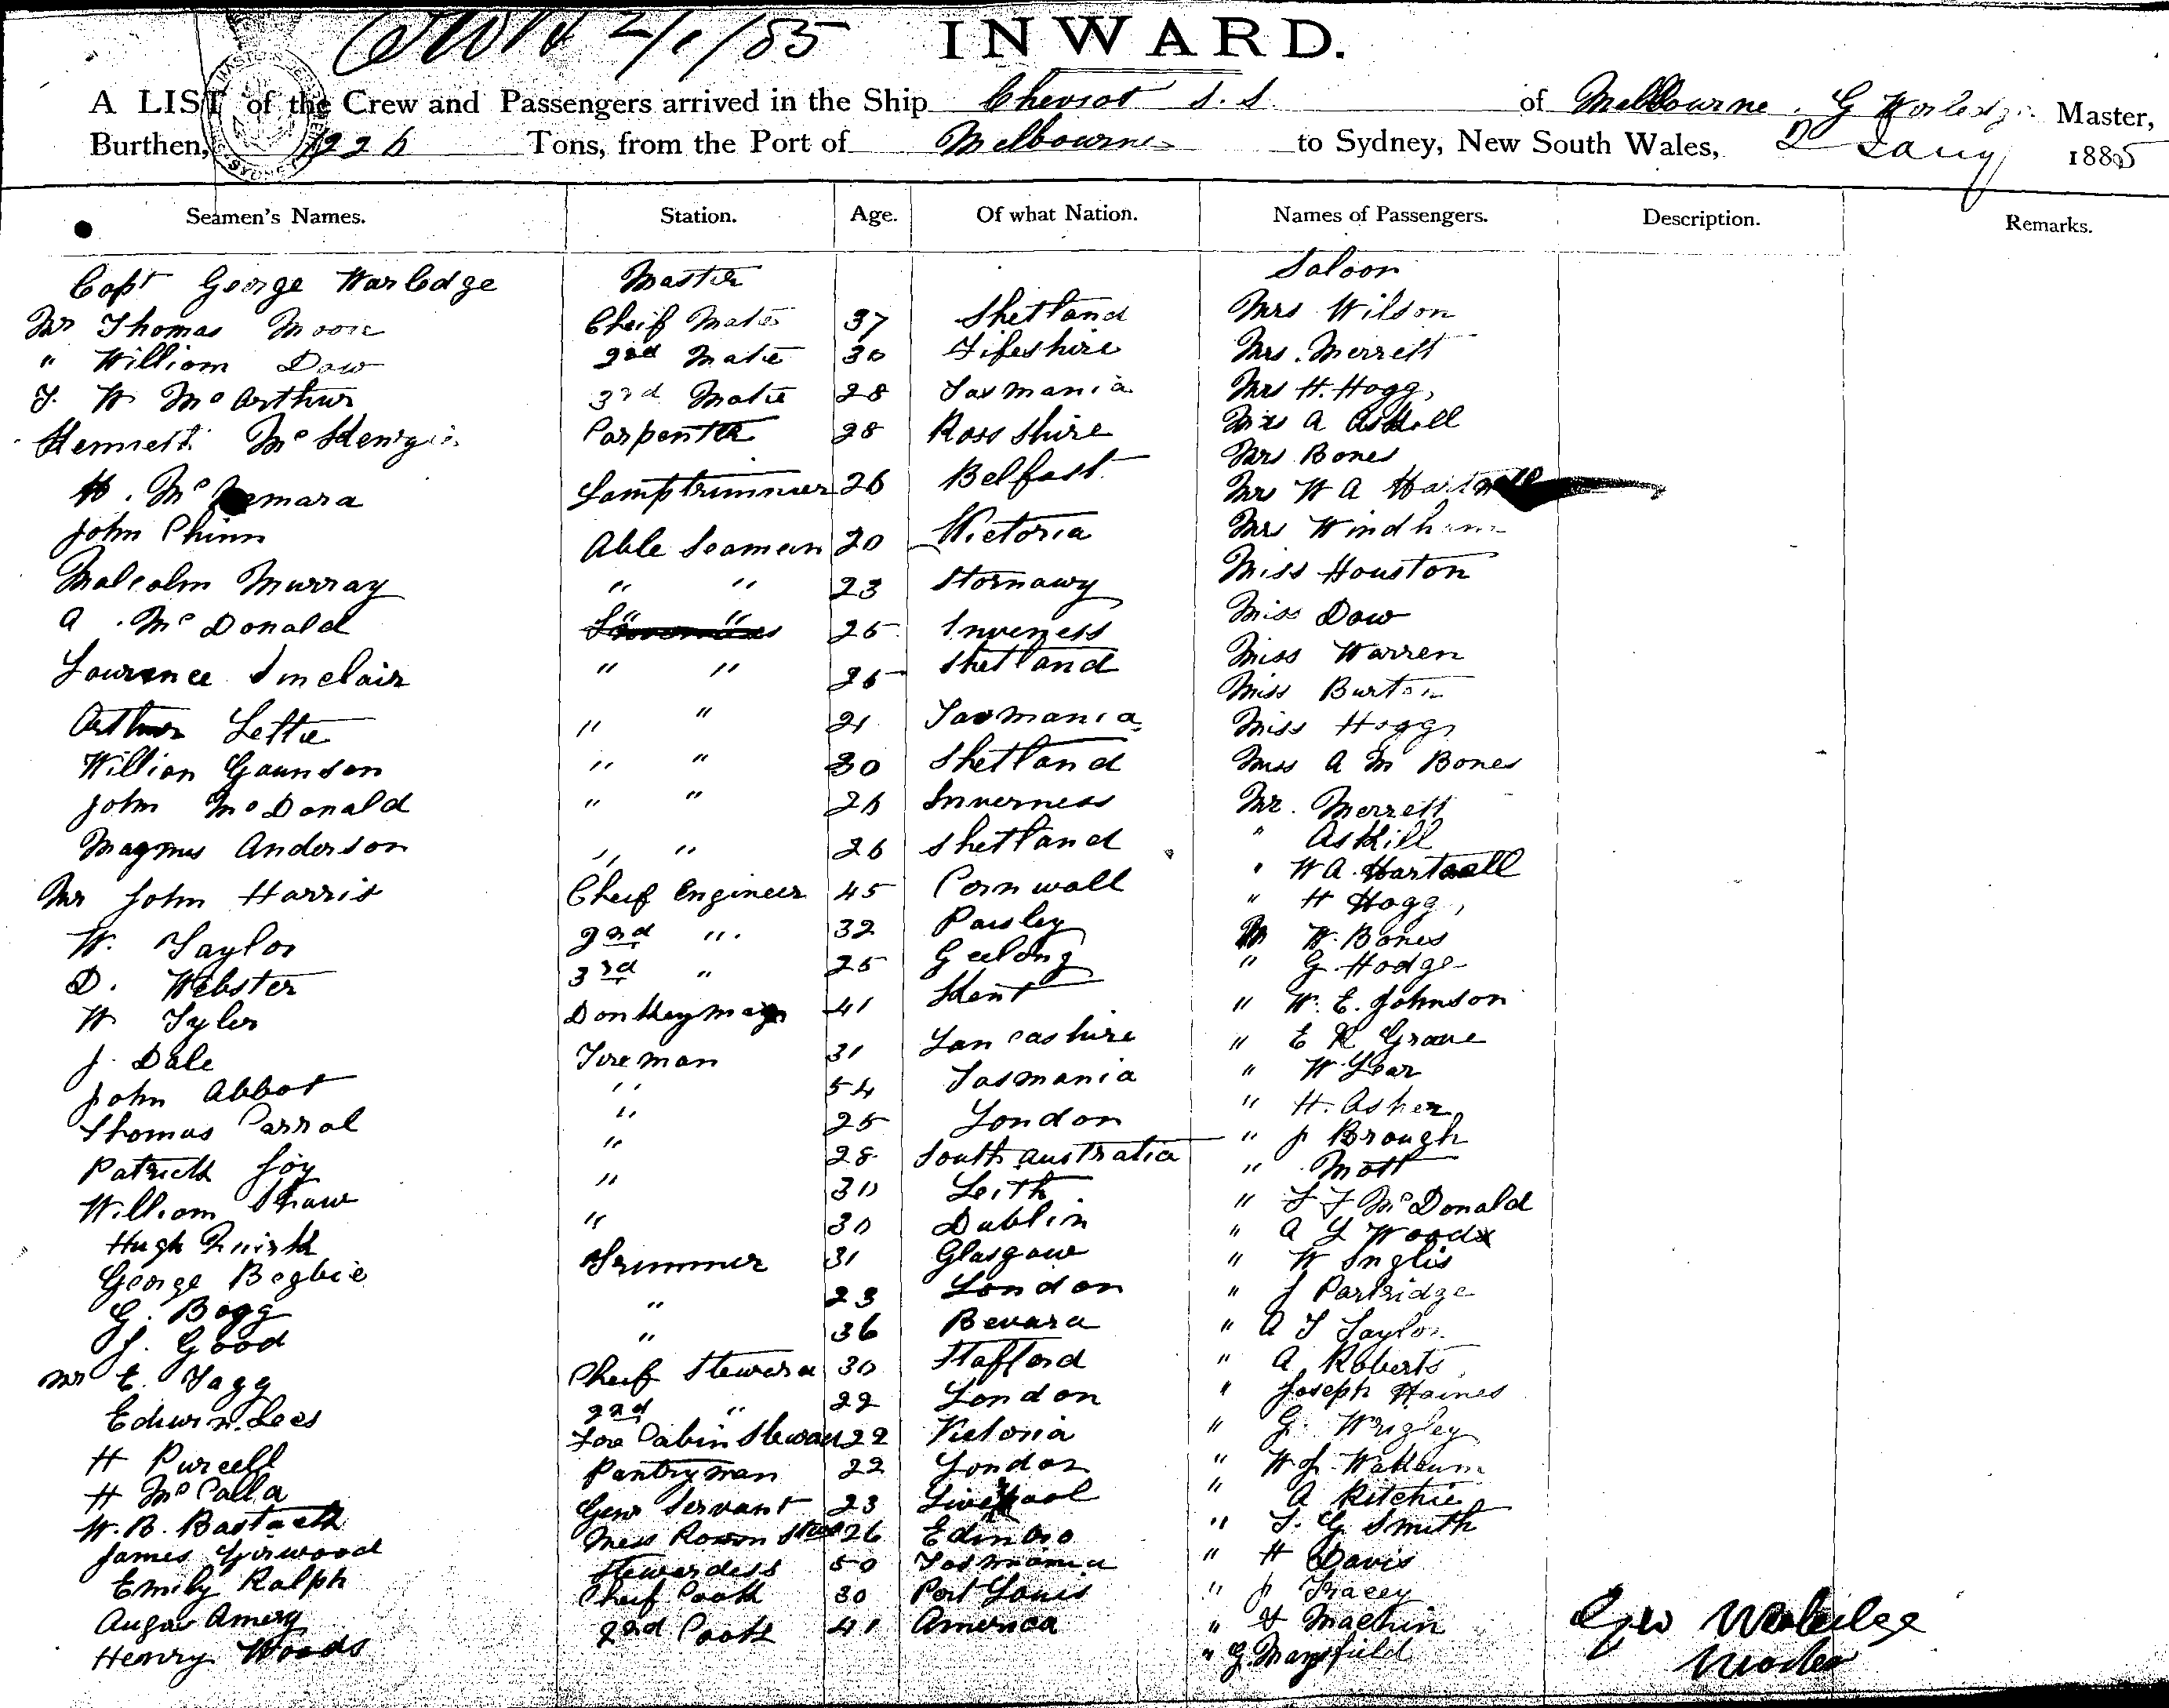 2/1/85 INWARD.
A LIST of the Crew and Passengers arrived in the Ship Cheviot S.S. of Melbourne. G Worledge Master,
Burthen, 1226 Tons, from the Port of Melbourne to Sydney, New South Wales, 2 Jany 1885
Seamen's Names. Station. Age. Of what Nation. Names of Passengers. Description. Remarks.
Capt George Warledge Master Saloon
Mr Thomas Moore Cheif Mate 37 Shetland Mrs Wilson
" William Daw 2nd Mate 30 Fifeshire Mrs. Merrett
T. W McArthur 3rd Mate 28 Tasmania Mrs H. Hogg,
Kennett McKenzie Carpenter 28 Ross shire Mrs A Askill
H. McNemara Lamptrimmer 26 Belfast Mrs Bones
Mrs W A Hartnell
John Chinn Able Seaman 20 Victoria Mrs Windham
Malcolm Murray " " 23 Stornawy Miss Houston
A. McDonald " " 25 Inverness Miss Daw
Lourence Sinclair " " 25 Shetland Miss Warren
Miss Burton
Arthur Lette " " 21 Tasmania Miss Hogg
William Gaunson " " 30 Shetland Miss A M Bones
John McDonald " " 26 Inverness Mr. Merrett
Magnus Anderson " " 26 Shetland " Askill
Mr John Harris Cheif Engineer 45 Cornwall " W A. Hartnell
W. Taylor 2nd " 32 Paisley " H Hogg,
D. Webster 3rd " 25 Geelong Mr W. Bones
W Tyler Donkeyman 41 Kent " G. Hodge
J. Dale Fireman 31 Lancashire " W. E. Johnson
John Abbot " 54 Tasmania " E R Grave
Thomas Carrol " 25 London " W. Lear
Patrick Joy " 28 South Australia " H. Asher
William Shaw " 30 Leith " J Brough
Hugh Quirk " 30 Dublin " Mott
George Begbie Trimmer 31 Glasgow " F F McDonald
G. Bogg " 23 London " A L Woods
J. Good " 36 Bevara " W Inglis
Mr E. Tagg Cheif Steward 30 Stafford " J Partridge
Edwin. Lees 2nd " 22 London " A T Taylor
H Purcell Fore Cabin Steward 22 Victoria " A. Roberts
H McCalla Pantryman 22 London " Joseph Haines
W. B. Bastack Genr Servant 23 Liverpool " G. Wrigley
James Girwood Mess Room Stwd 26 Edinbro " W J. Wakum
Emily Ralph Stewardess 50 Tasmania " A Ritchie
Augus Amery Cheif Cook 30 Port Louis " T. G Smith
Henry Woods 2nd Cook 41 America " H Davis
" J Tracey
" H Machin
" G. Mansfield
Geo Worledge
Master